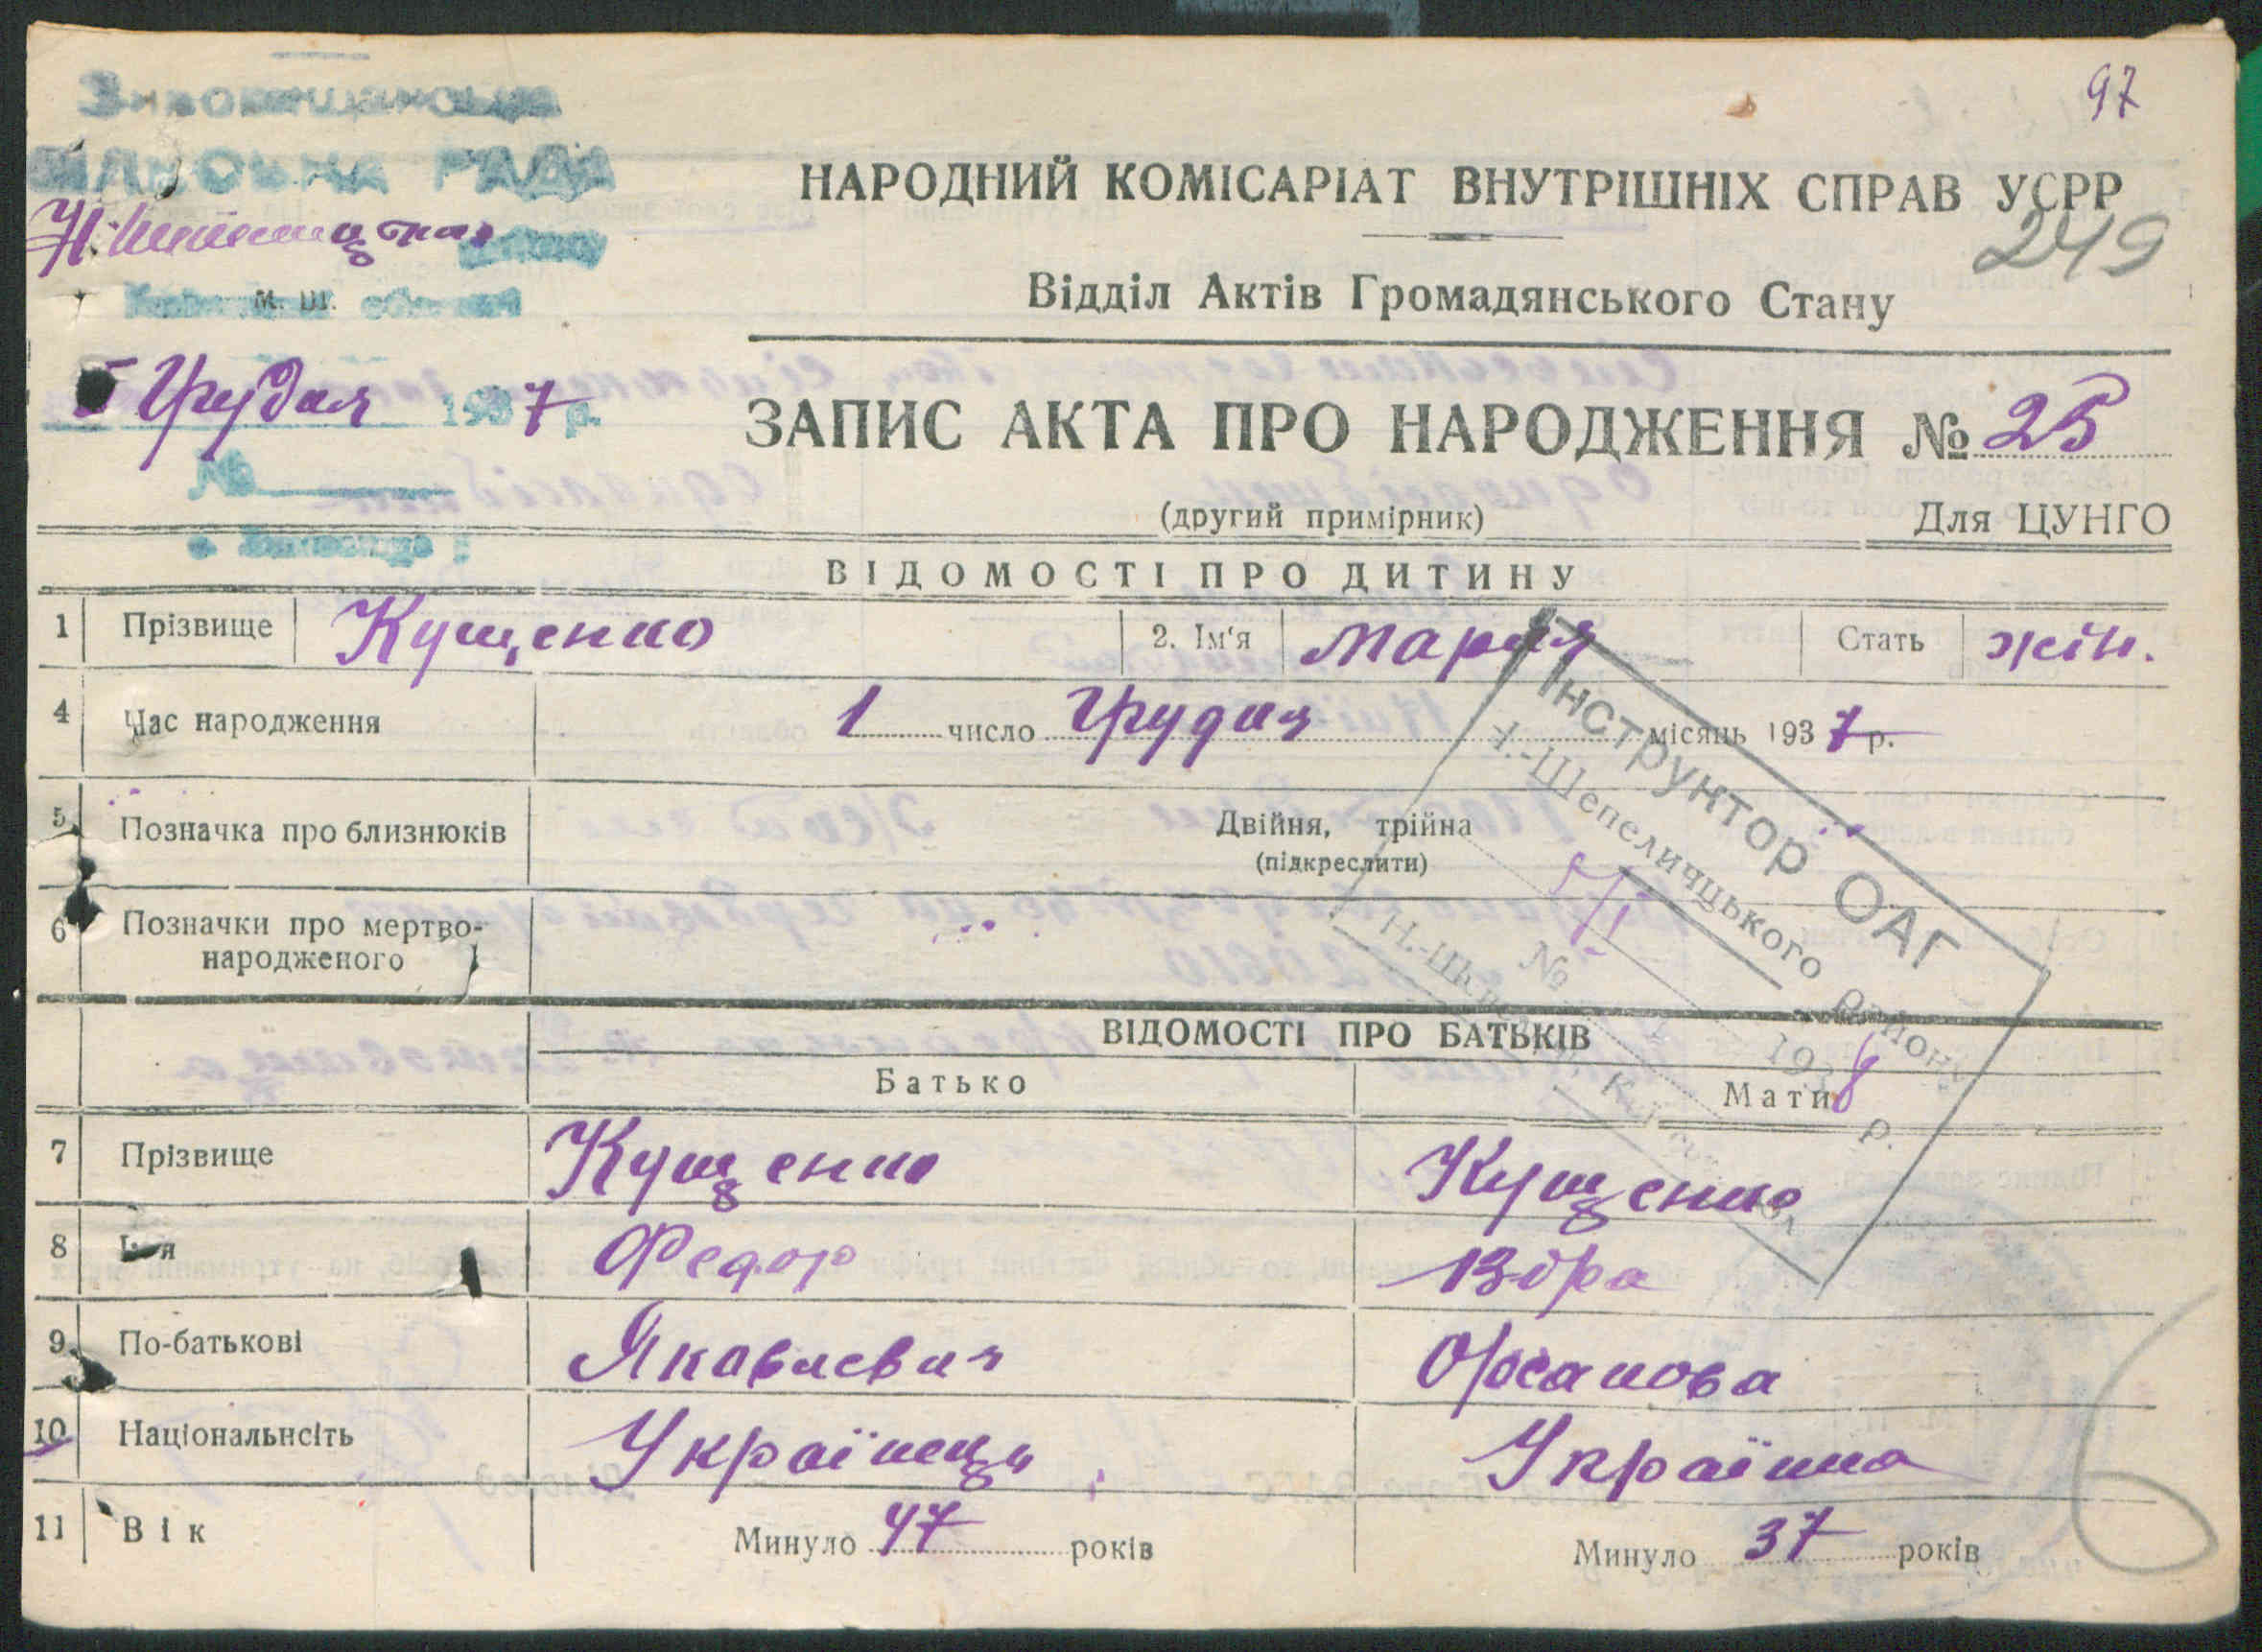 97
РАДА
НАРОДНИЙ КОМІСАРІАТ ВНУТРІШНІХ СПРАВ УСРР
249
М. Ш.
області
Відділ Актів Громадянського Стану
5 Грудня 1937 р.
ЗАПИС АКТА ПРО НАРОДЖЕННЯ № 25
№
(другий примірник)
Для ЦУНГО
ВІДОМОСТІ ПРО ДИТИНУ
1 Прізвище Кущенко 2. Ім'я Марія Стать жін.
4 Час народження 1 число Грудня місяць 1937 р.
5 Позначка про близнюків Двійня, трійна
(підкреслити)
6 Позначки про мертво-
народженого
Інструктор ОАГ
Н.-Шепелицького району
№
1938 р.
ВІДОМОСТІ ПРО БАТЬКІВ
Батько Мати
7 Прізвище Кущенко Кущенко
8 Ім'я Федор Віра
9 По-батькові Яковлевич
10 Національнсіть Українець Українка
11 Вік Минуло 47 років Минуло 37 років